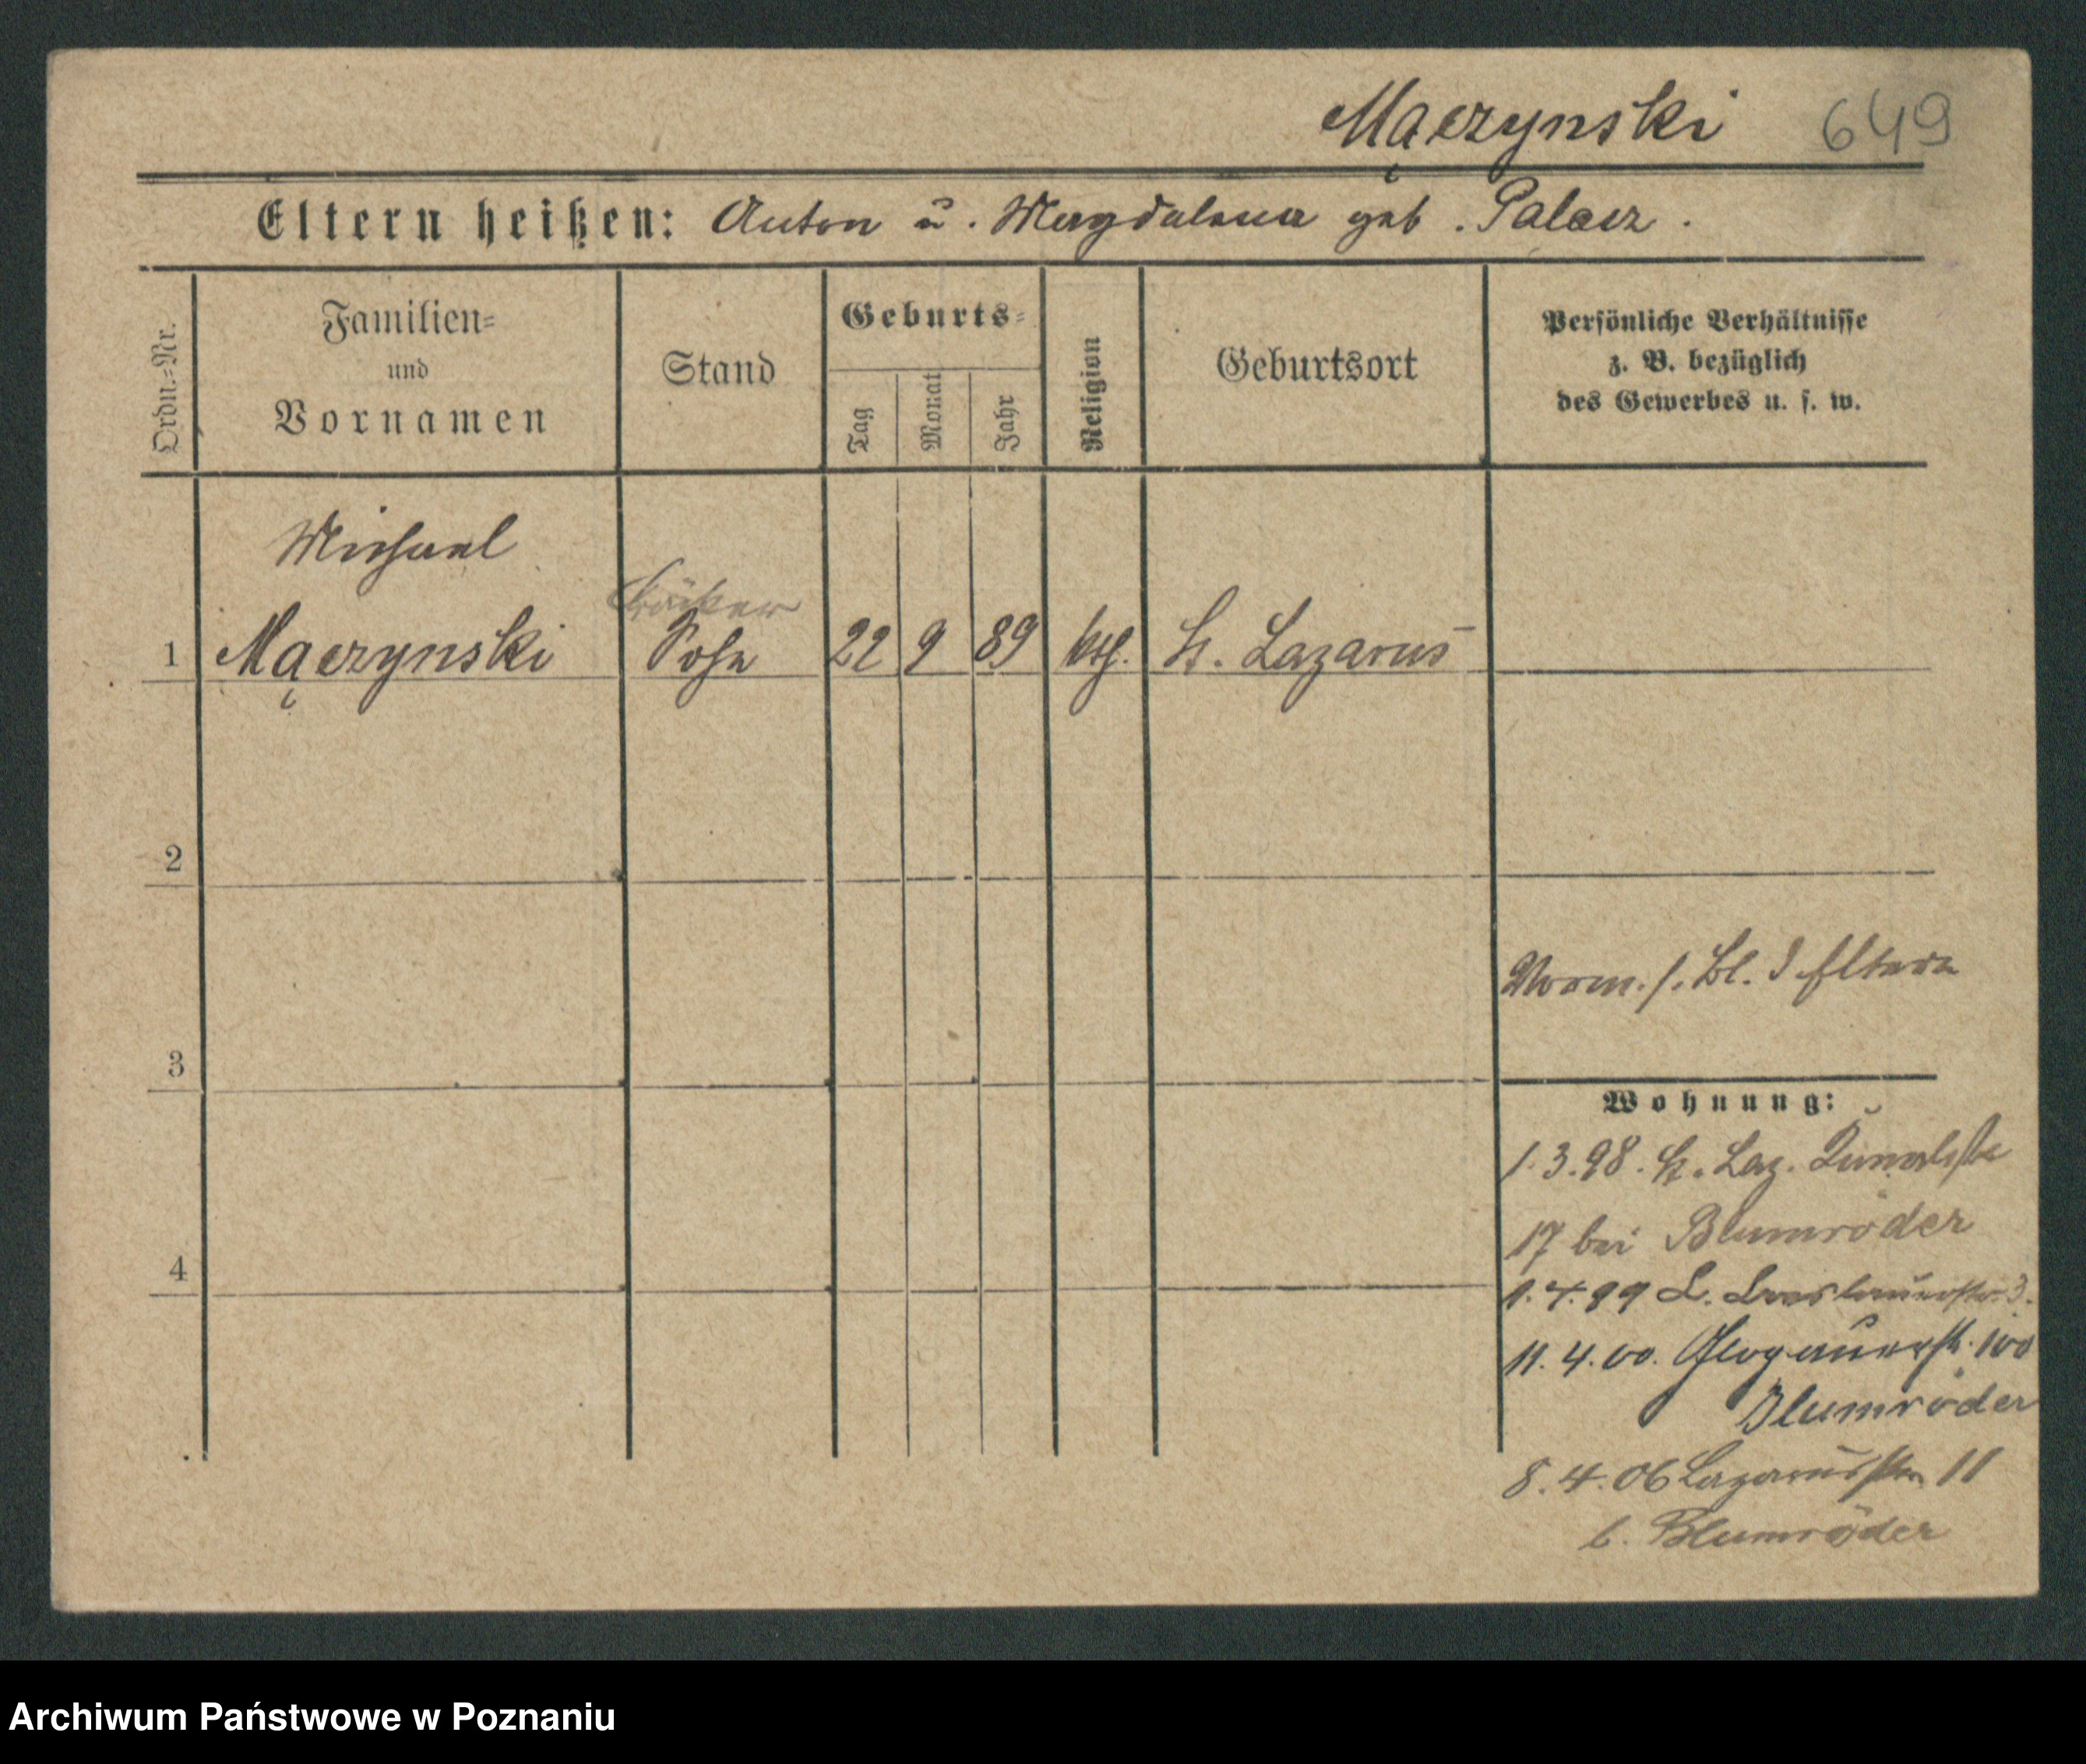 Mączynski 649
Eltern heißen: Anton u. Magdalena geb. Palacz.
Ordn.=Nr.
Familien=
und
Vornamen
Stand
Geburts=
Tag
Monat
Jahr
Religion
Geburtsort
Persönliche Verhältnisse
z. B. bezüglich
des Gewerbes u. s. w.
Michael
1 Mączynski Sohn 22 9 89 kth. St. Lazarus
2
3
4
Bl. Eltern
Wohnung:
1.3.98. St. Laz.
17 bei Blumröder
1.4.99 L. 3.
11.4.00. Glogauerstr. 100
Blumröder
8.4.06 Lazarusstr. 11
b. Blumröder
Archiwum Państwowe w Poznaniu